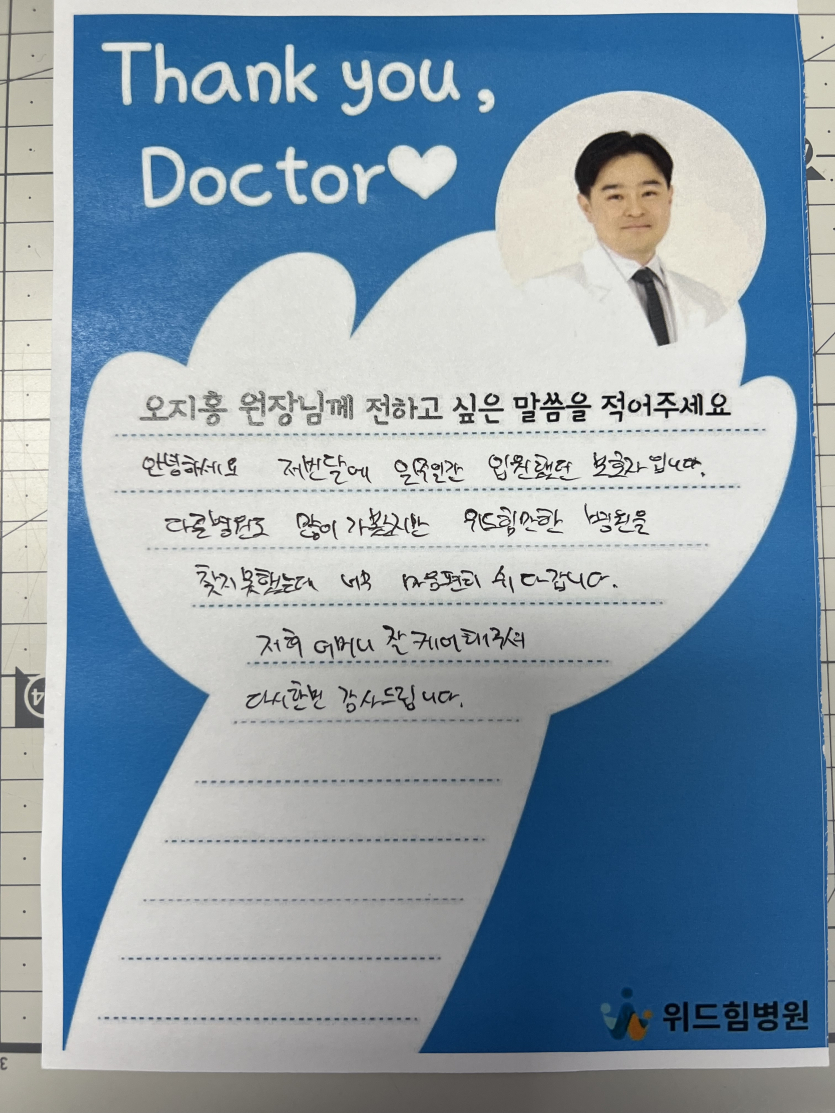 Thank you,
Doctor♥
오지홍 원장님께 전하고 싶은 말씀을 적어주세요
안녕하세요 저번달에 일주일간 입원했던 보호자입니다.
다른병원도 많이 가봤지만 위드힘만한 병원을
찾지 못했는데 너무 마음편히 쉬다갑니다.
저희 어머니 잘 케어해주셔
다시한번 감사드립니다.
위드힘병원